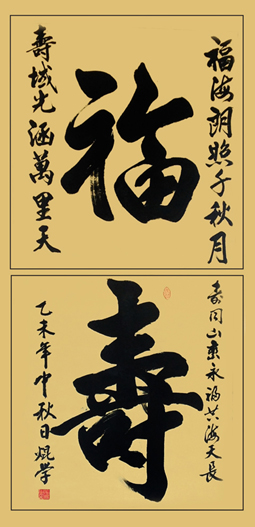 福海朗照千秋月
福
壽域光涵萬里天
壽同山岳永福共海天長
壽
乙未年中秋日焜学